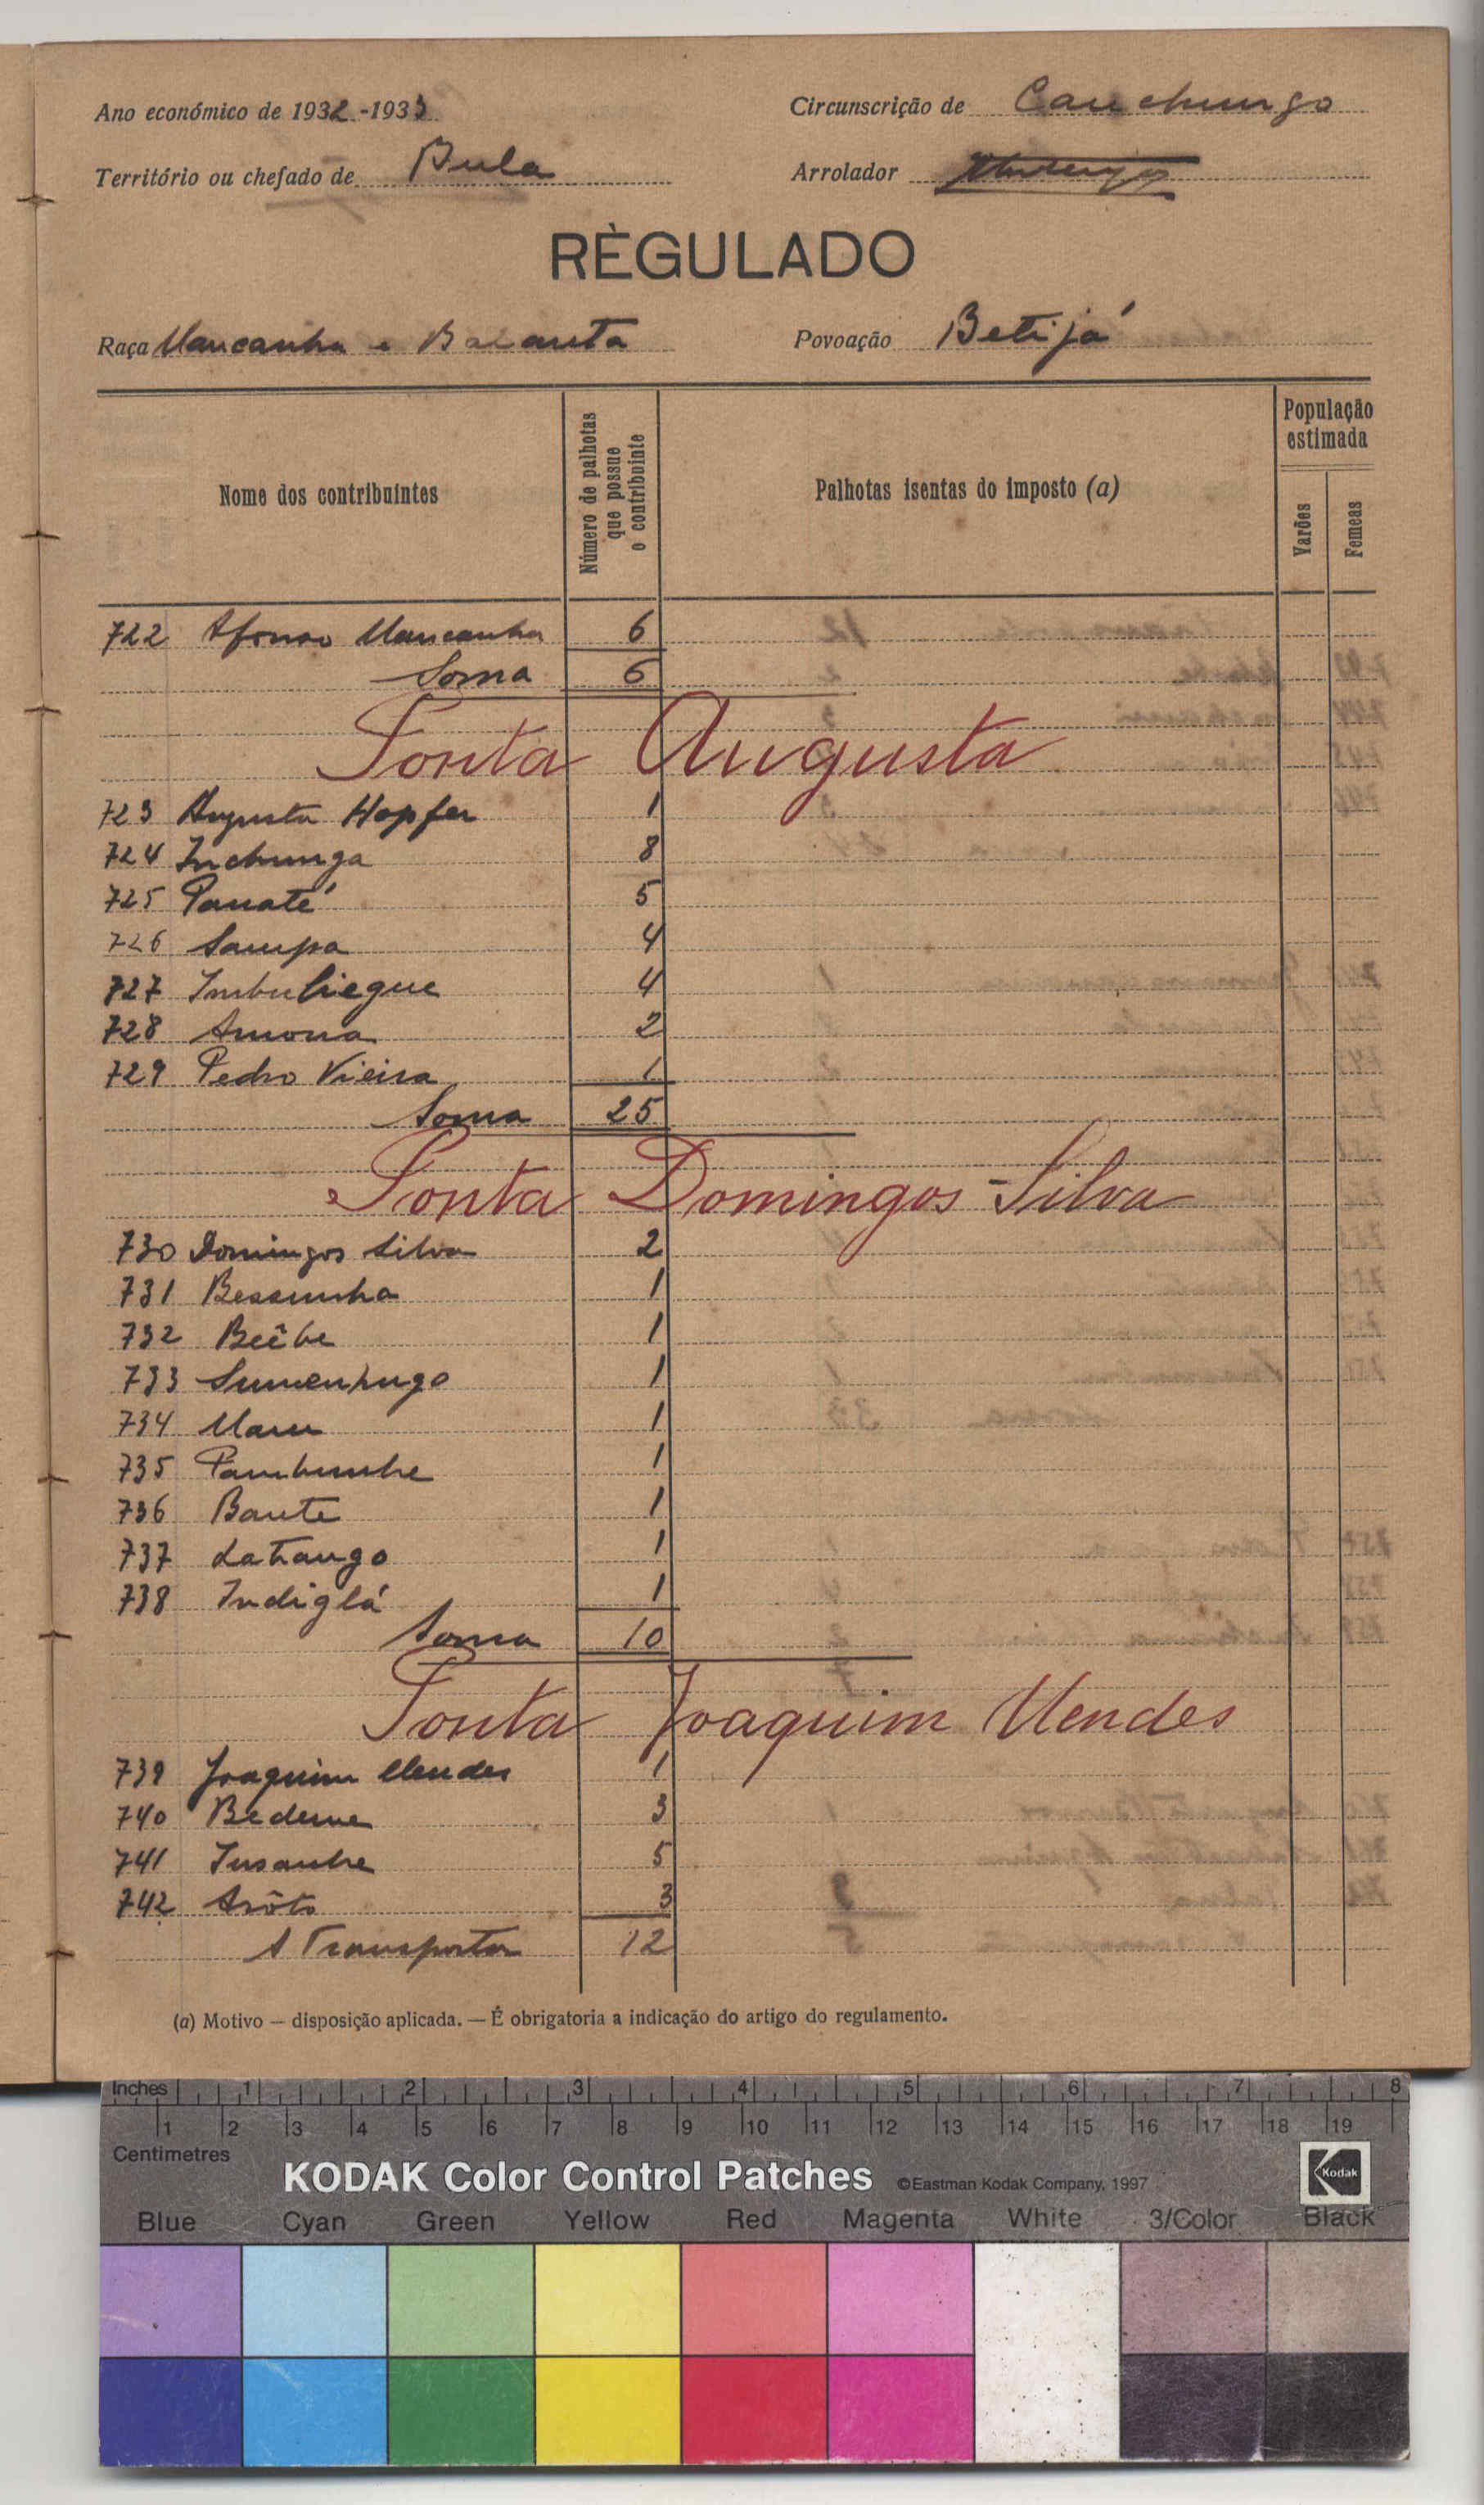 Ano económico de 1932-1933
Circunscrição de Canchungo
Território ou chefado de Bula
Arrolador
RÈGULADO
Raça Mancanha e Balanta
Povoação Betijá
Nome dos contribuintes
Número de palhotas que possue o contribuinte
Palhotas isentas do imposto (a)
População estimada
Varões
Femeas
722 Afonso Mancanha 6
Soma 6
Ponta Augusta
723 Augusta Hopfer 1
724 Inchunga 8
725 Panaté 5
726 Sampa 4
727 Imbuliegue 4
728 Amona 2
729 Pedro Vieira 1
Soma 25
Ponta Domingos Silva
730 Domingos Silva 2
731 Bessunha 1
732 Beêbe 1
733 1
734 1
735 1
736 Bante 1
737 Latango 1
738 Indiglá 1
Soma 10
Ponta Joaquim Mendes
739 Joaquim Mendes 1
740 Bedeme 3
741 5
742 Arôto 3
A Transportar 12
(a) Motivo — disposição aplicada. — É obrigatoria a indicação do artigo do regulamento.
Inches 1 2 3 4 5 6 7 8
1 2 3 4 5 6 7 8 9 10 11 12 13 14 15 16 17 18 19
Centimetres
KODAK Color Control Patches ©Eastman Kodak Company, 1997 Kodak
Blue Cyan Green Yellow Red Magenta White 3/Color Black